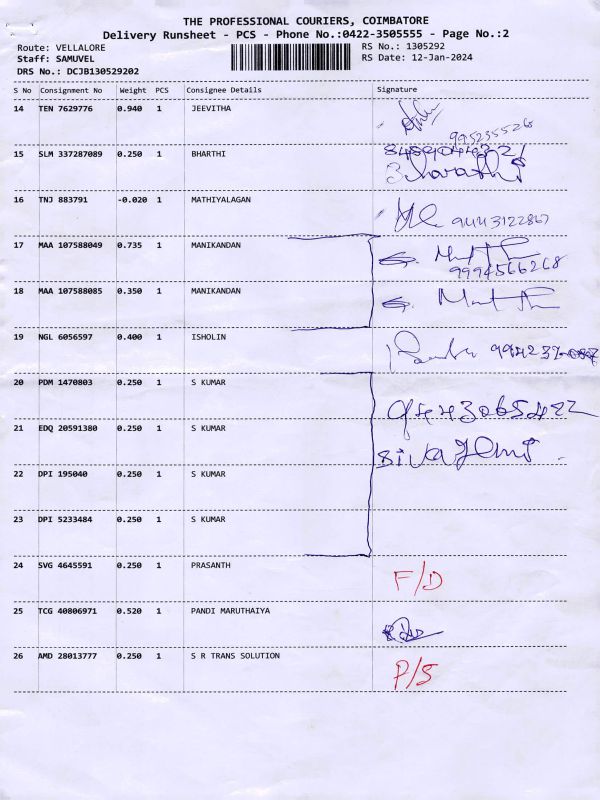 THE PROFESSIONAL COURIERS, COIMBATORE
Delivery Runsheet - PCS - Phone No.:0422-3505555 - Page No.:2
Route: VELLALORE RS No.: 1305292
Staff: SAMUVEL RS Date: 12-Jan-2024
DRS No.: DCJB130529202
S No Consignment No Weight PCS Consignee Details Signature
14 TEN 7629776 0.940 1 JEEVITHA
995235526
15 SLM 337287089 0.250 1 BHARTHI
Bharathi
16 TNJ 883791 -0.020 1 MATHIYALAGAN
9443122867
17 MAA 107588049 0.735 1 MANIKANDAN
9994566268
18 MAA 107588085 0.350 1 MANIKANDAN
19 NGL 6056597 0.400 1 ISHOLIN
20 PDM 1470803 0.250 1 S KUMAR
9443065422
21 EDQ 20591380 0.250 1 S KUMAR
22 DPI 195040 0.250 1 S KUMAR
23 DPI 5233484 0.250 1 S KUMAR
24 SVG 4645591 0.250 1 PRASANTH F/D
25 TCG 40806971 0.520 1 PANDI MARUTHAIYA
26 AMD 28013777 0.250 1 S R TRANS SOLUTION P/S